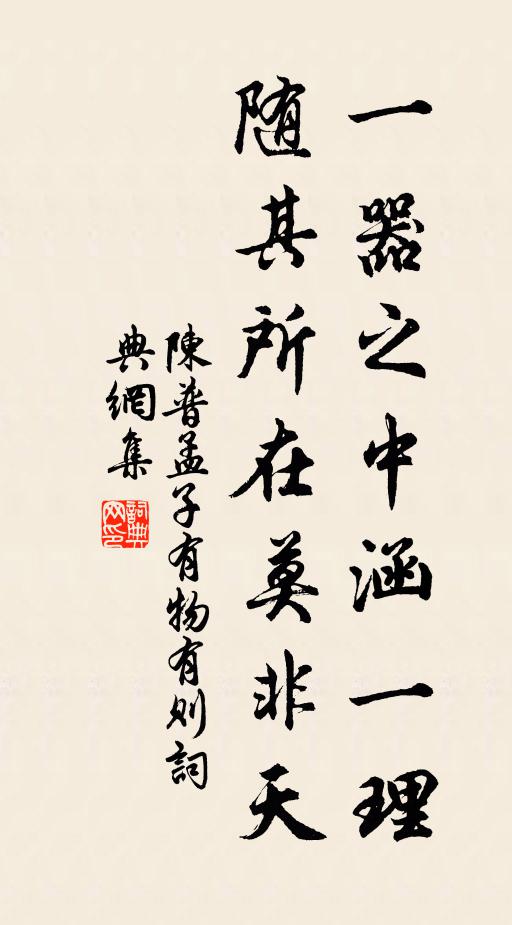 一器之中涵一理
随其所在莫非天
陳普孟子有物有则詞
典網集
詞典网印